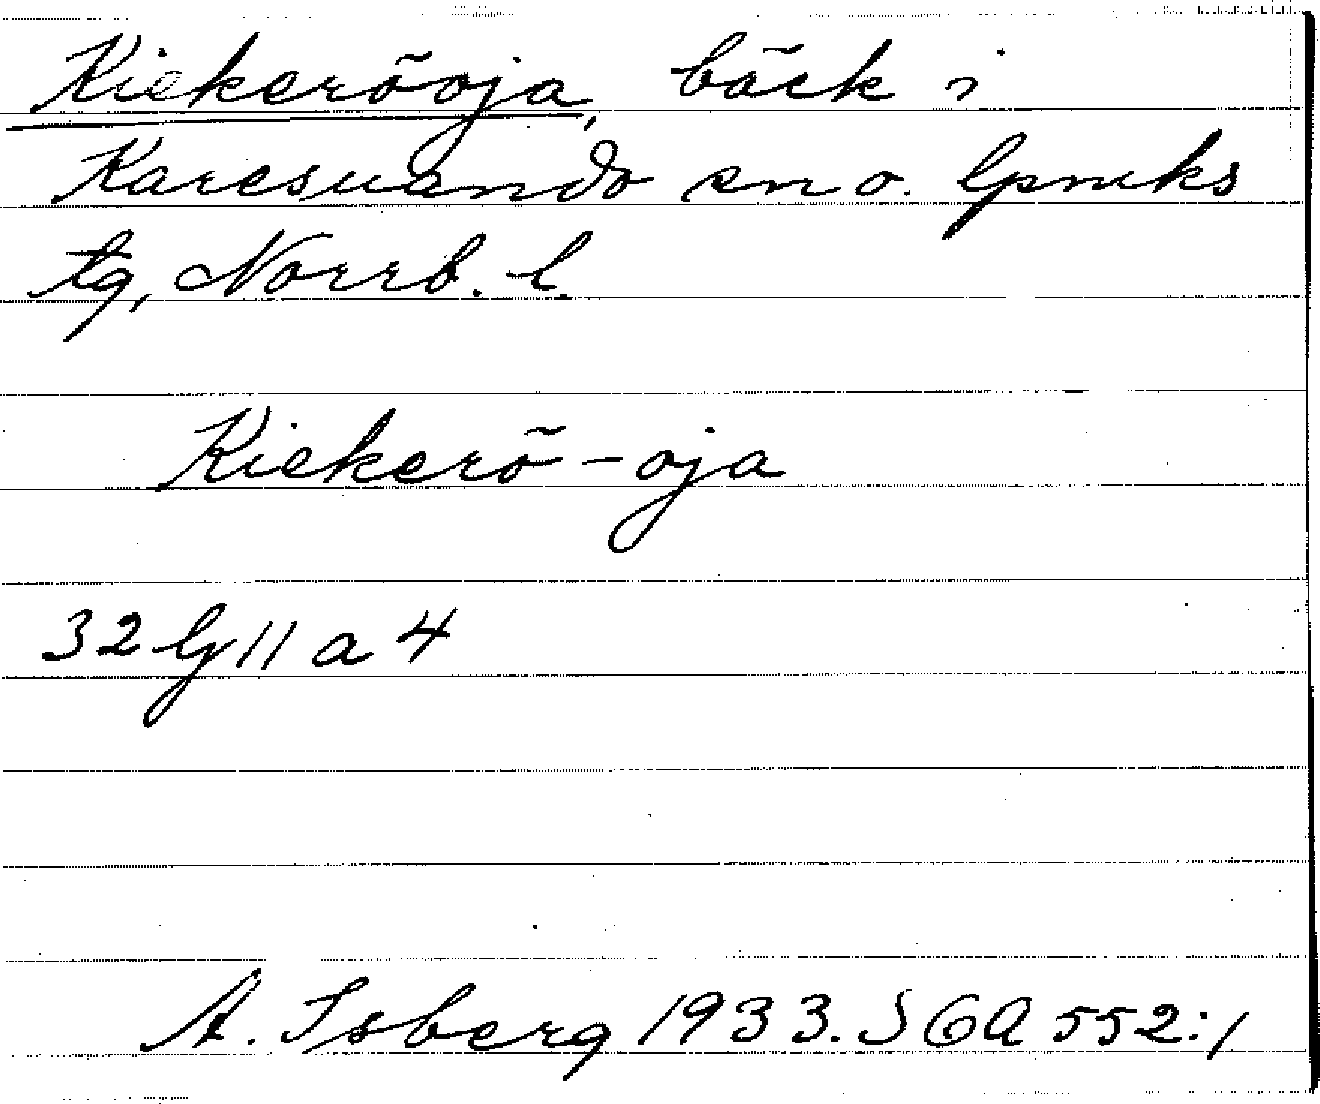 Kiekerõoja, bäck i
Karesuando sn o. lpmks
tg, Norrb. l.
Kiekerõ-oja
32 G 11 a 4
A. Isberg 1933. SOA 552:1